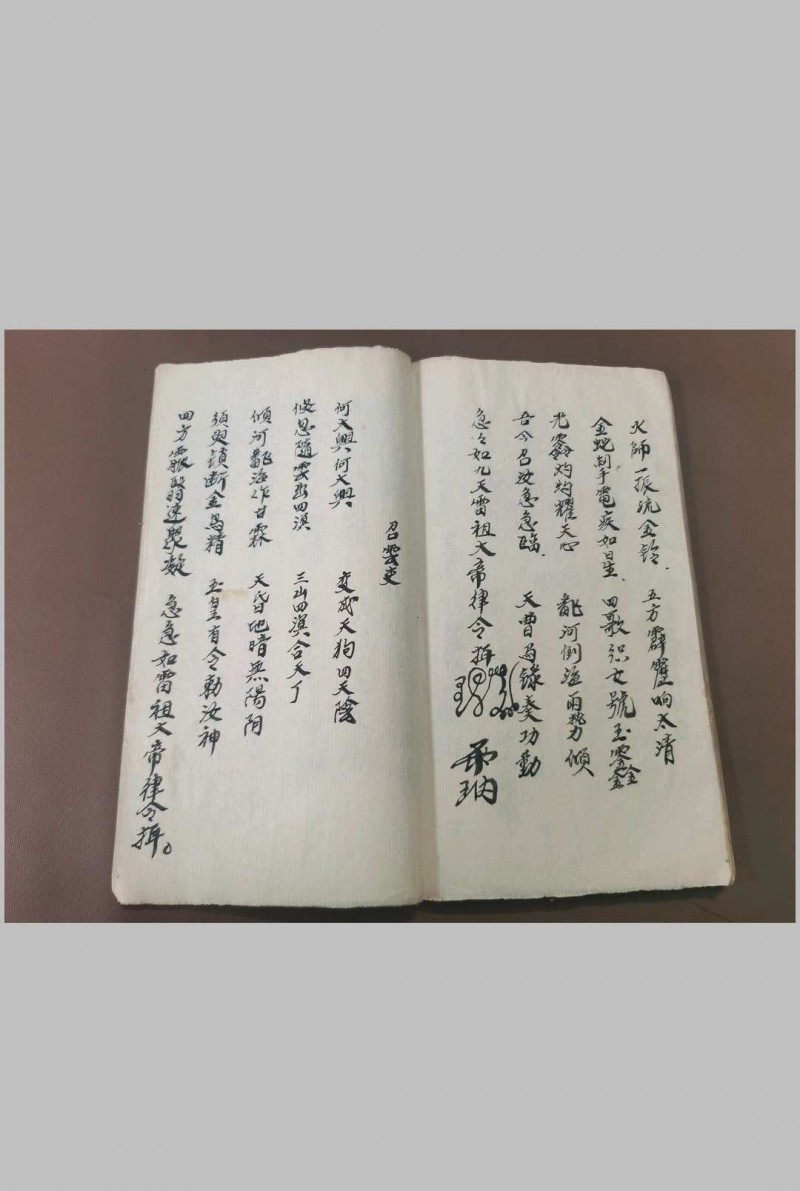 火師一振流金鈴 五方霹靂响太清
金蛇制手電疾如星 四歌況女號玉霄
光霹灼灼耀天心 翻河倒海雨勢傾
吾今召汝急急臨 天曹马錄奏功勳
急々如九天雷祖大帝律令揖
召雲吏
何大興何大興 变成天狗四天陰
倐忽隨雲出四溟 三山四溟合天丁
傾河翻海作甘霖 天昏地暗無陽阴
須臾鎖断金烏精 玉皇有令勅汝神
四方靉靆速聚凝 急急如雷祖大帝律令揖。